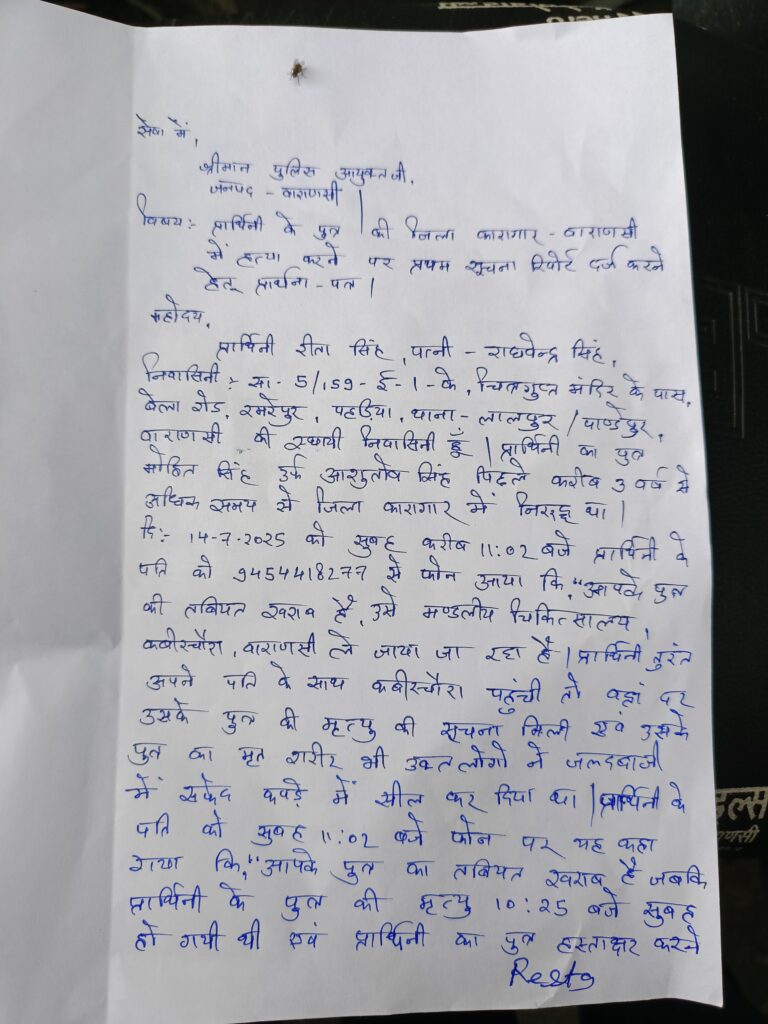 सेवा में,
श्रीमान पुलिस आयुक्त जी,
जनपद - वाराणसी |
विषय:- प्रार्थिनी के पुत्र की जिला कारागार - वाराणसी
में हत्या करने पर प्रथम सूचना रिपोर्ट दर्ज करने
हेतु प्रार्थना - पत्र |
महोदय,
प्रार्थिनी रीता सिंह, पत्नी - राघवेन्द्र सिंह,
निवासिनी:- सा- 5/159 - ई - 1 - के, चित्रगुप्त मंदिर के पास,
बेला रोड, रमरेपुर, पहड़िया, थाना - लालपुर / पाण्डेपुर,
वाराणसी की स्थायी निवासिनी हूँ | प्रार्थिनी का पुत्र
मोहित सिंह उर्फ आशुतोष सिंह पिछले करीब 3 वर्ष से
अधिक समय से जिला कारागार में निरुद्ध था |
दि:- 14-7-2025 को सुबह करीब 11:02 बजे प्रार्थिनी के
पति को 9454418277 से फोन आया कि, "आपके पुत्र
की तबियत खराब है, उसे मण्डलीय चिकित्सालय,
कबीरचौरा, वाराणसी ले जाया जा रहा है | प्रार्थिनी तुरंत
अपने पति के साथ कबीरचौरा पहुंची तो वहां पर
उसके पुत्र की मृत्यु की सूचना मिली एवं उसके
पुत्र का मृत शरीर भी उक्त लोगो ने जल्दबाजी
में सफेद कपड़े में सील कर दिया था | प्रार्थिनी के
पति को सुबह 11:02 बजे फोन पर यह कहा
गया कि, "आपके पुत्र का तबियत खराब है जबकि
प्रार्थिनी के पुत्र की मृत्यु 10:25 बजे सुबह
हो गयी थी एवं प्रार्थिनी का पुत्र हस्ताक्षर करने